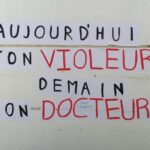 AUJOURD'HUI
TON VIOLEUR
DEMAIN
TON DOCTEUR